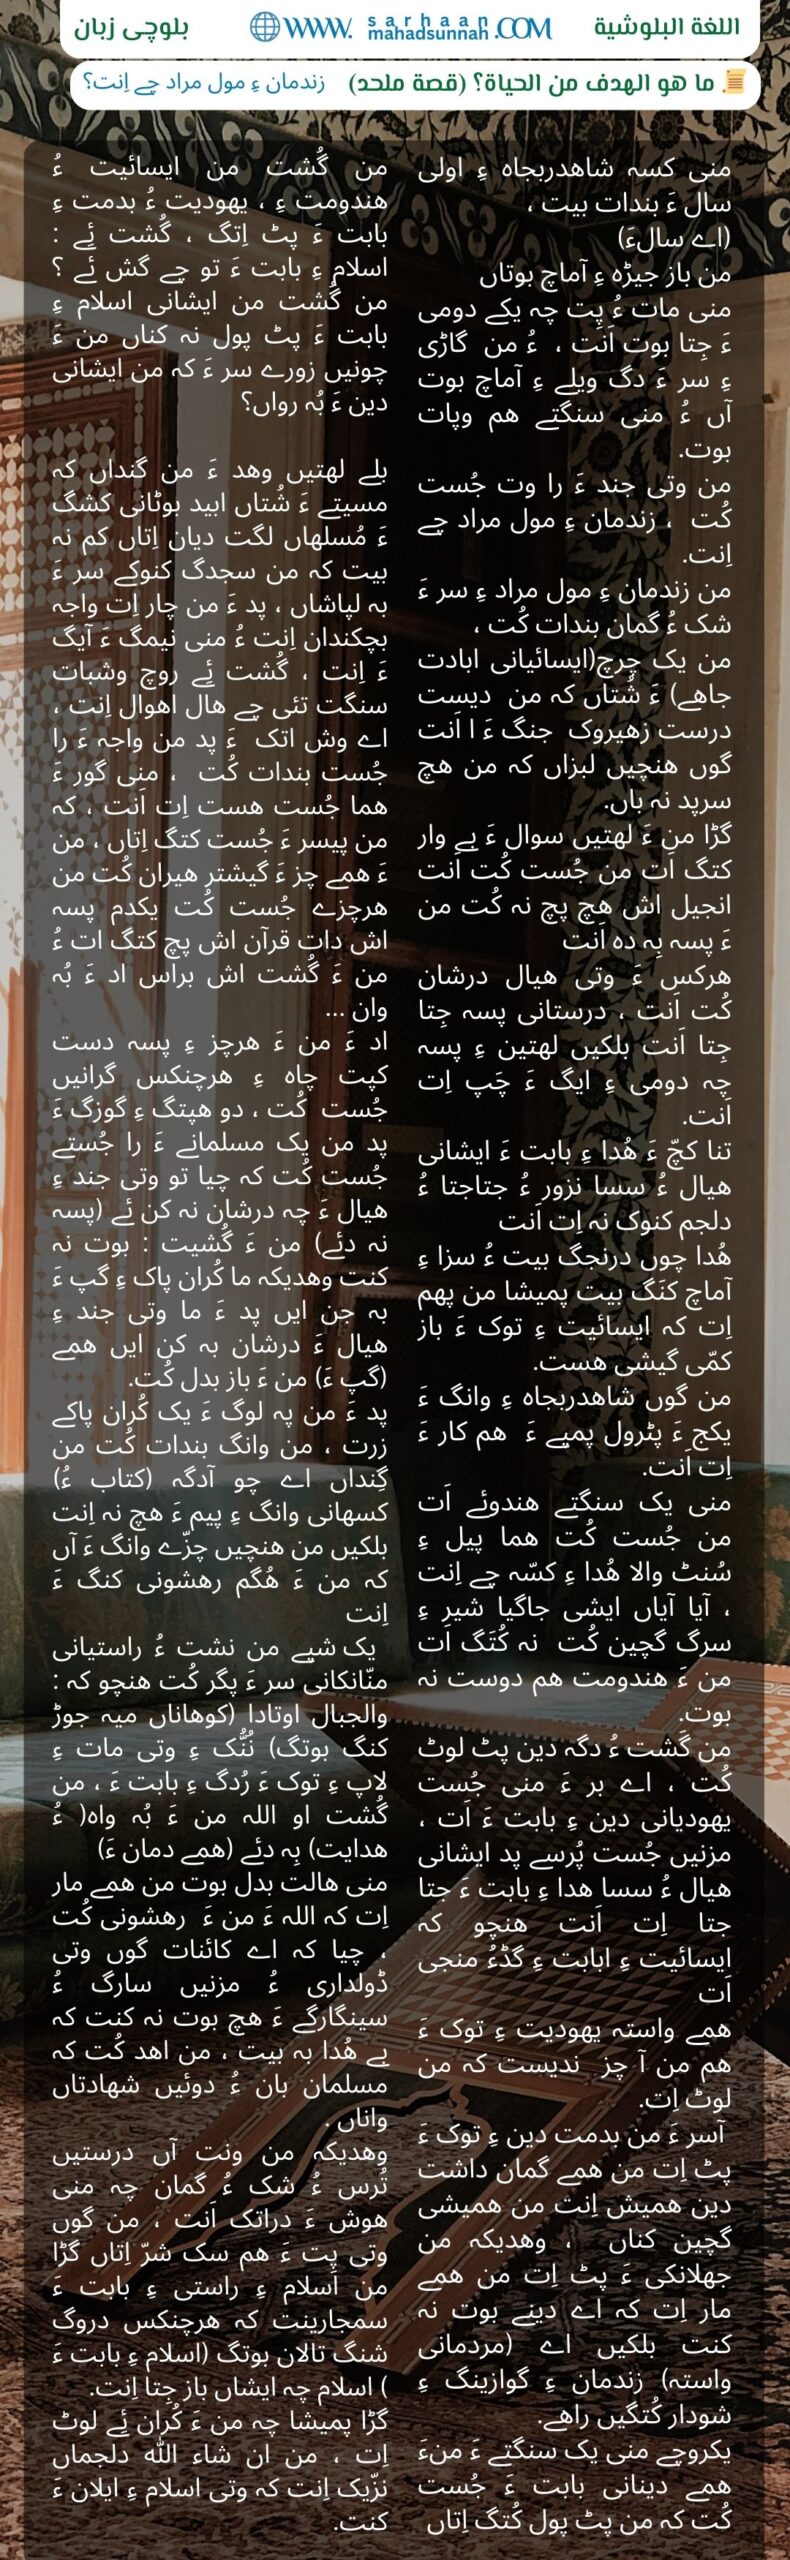 اللغة البلوشية
WWW. sarhaan mahadsunnah .COM
بلوچی زبان
ما هو الهدف من الحياة؟ (قصة ملحد) زندمان ءِ مول مراد چے اِنت؟
منی کسہ شاهدربجاه ءِ اولی
سال ءَ بندات بیت ،
(اے سالءَ)
من باز جیڑہ ءِ آماچ بوتاں
منی مات ءُ پت چہ یکے دومی
ءَ جِتا بوت اَنَت ، ءُ من گاڑی
ءِ سر ءَ دگ ویلے ءِ آماچ بوت
آں ءُ منی سنگتے هم وپات
بوت.
من وتی جند ءَ را وت جُست
کُت ، زندمان ءِ مول مراد چے
اِنت.
من زندمان ءِ مول مراد ءِ سر ءَ
شک ءُ گمان بندات کُت ،
من یک چرچ(ایسائیانی ابادت
جاهے) ءَ شُتاں کہ من دیست
درست زهیروک جنگ ءَ ا اَنت
گوں هنچیں لبزاں کہ من هچ
سرپد نہ باں.
گڑا من ءَ لهتیں سوال ءَ بے وار
کتگ اَت من جُست کُت اَنت
انجیل اش هچ پچ نہ کُت من
ءَ پسہ بِہ دہ اَنَت
هرکس ءَ وتی هیال درشان
کُت اَنت ، درستانی پسہ جِتا
جِتا اَنت بلکیں لهتین ءِ پسہ
چہ دومی ءِ ایگ ءَ چَپ اِت
اَنت.
تنا کچّ ءَ هُدا ءِ بابت ءَ ایشانی
هیال ءُ سسا نزور ءُ جتاجتا ءُ
دلجم کنوک نہ اِت اَنت
هُدا چوں درنجگ بیت ءُ سزا ءِ
آماچ کنَگ بیت پمیشا من پهم
اِت کہ ایسائیت ءِ توک ءَ باز
کمّی گیشی هست.
من گوں شاهدربجاه ءِ وانگ ءَ
یکج ءَ پٹرول پمپے ءَ هم کار ءَ
اِت اَنت.
منی یک سنگتے هندوئے اَت
من جُست کُت هما پیل ءِ
سُنٹ والا هُدا ءِ کسّہ چے اِنت
، آیا آیاں ایشی جاگیا شیر ءِ
سرگ گچین کُت نہ کُتَگ اَت
من ءَ هندومت هم دوست نہ
بوت.
من گَشت ءُ دگہ دین پٹ لوٹ
کُت ، اے بر ءَ منی جُست
یهودیانی دین ءِ بابت ءَ اَت ،
مزنیں جُست پُرسے پد ایشانی
هیال ءُ سسا هدا ءِ بابت ءَ جتا
جتا اِت اَنت هنچو کہ
ایسائیت ءِ ابابت ءِ گڈءُ منجی
اَت
همے واستہ یهودیت ءِ توک ءَ
هم من آ چز ندیست کہ من
لوٹ اِت.
آسر ءَ من بدمت دین ءِ توک ءَ
پٹ اِت من همے گمان داشت
دین همیش اِنت من همیشی
گچین کناں ، وهدیکہ من
جهلانکی ءَ پٹ اِت من همے
مار اِت کہ اے دینے بوت نہ
کنت بلکیں اے (مردمانی
واستہ) زندمان ءِ گوازینگ ءِ
شودار کُتگیں راهے.
یکروچے منی یک سنگتے ءَ منءَ
همے دینانی بابت ءَ جُست
کُت کہ من پٹ پول کُتگ اِتاں
من گُشت من ایسائیت ءُ
هندومت ءِ ، یهودیت ءُ بدمت ءِ
بابت ءَ پٹ اِتگ ، گُشت ئِے :
اسلام ءِ بابت ءَ تو چے گش ئے ؟
من گُشت من ایشانی اسلام ءِ
بابت ءَ پٹ پول نہ کناں من ءَ
چونیں زورے سر ءَ کہ من ایشانی
دین ءَ بُہ رواں؟
بلے لهتیں وهد ءَ من گنداں کہ
مسیتے ءَ شُتاں ابید بوٹانی کشگ
ءَ مُسلهاں لگت دیان اِتاں کم نہ
بیت کہ من سجدگ کنوکے سر ءَ
بہ لپاشاں ، پد ءَ من چار اِت واجہ
بچکندان اِنت ءُ منی نیمگ ءَ آیگ
ءَ اِنت ، گُشت ئِے روچ وشبات
سنگت تئی چے هال اهوال اِنت ،
اے وش اتک ءَ پد من واجہ ءَ را
جُست بندات کُت ، منی گور ءَ
هما جُست هست اِت اَنت ، کہ
من پیسر ءَ جُست کتگ اِتاں ، من
ءَ همے چز ءَ گیشتر هیران کُت من
هرچزے جُست کُت یکدم پسہ
اش دات قرآن اش پچ کتگ ات ءُ
من ءَ گُشت اش براس اد ءَ بُہ
وان ...
اد ءَ من ءَ هرچز ءِ پسہ دست
کپت چاه ءِ هرچنکس گرانیں
جُست کُت ، دو هپتگ ءِ گوزگ ءَ
پد من یک مسلمانے ءَ را جُستے
جُست کُت کہ چیا تو وتی جند ءِ
هیال ءَ چہ درشان نہ کن ئے (پسہ
نہ دئے) من ءَ گُشیت : بوت نہ
کنت وهدیکہ ما کُران پاک ءِ گپ ءَ
بہ جن ایں پد ءَ ما وتی جند ءِ
هیال ءَ درشان بہ کن ایں همے
(گپ ءَ) من ءَ باز بدل کُت.
پد ءَ من پہ لوگ ءَ یک کُران پاکے
زرت ، من وانگ بندات کُت من
گِنداں اے چو آدگہ (کتاب ءُ)
کسهانی وانگ ءِ پیم ءَ هچ نہ اِنت
بلکیں من هنچیں چزّے وانگ ءَ آں
کہ من ءَ هُگم رهشونی کنگ ءَ
اِنت
یک شپے من نشت ءُ راستیانی
منّانکانی سر ءَ پگر کُت هنچو کہ :
والجبال اوتادا (کوهاناں میہ جوڑ
کنگ بوتگ) نُنُّک ءِ وتی مات ءِ
لاپ ءِ توک ءَ رُدگ ءِ بابت ءَ ، من
گُشت او اللہ من ءَ بُہ واہ( ءُ
هدایت) بِہ دئے (همے دمان ءَ)
منی هالت بدل بوت من همے مار
اِت کہ اللہ ءَ من ءَ رهشونی کُت
، چیا کہ اے کائنات گوں وتی
ڈولداری ءُ مزنیں سارگ ءُ
سینگارگے ءَ هچ بوت نہ کنت کہ
بے هُدا بہ بیت ، من اهد کُت کہ
مسلمان بان ءُ دوئیں شهادتاں
واناں .
وهدیکہ من ونت آں درستیں
تُرس ءُ شک ءُ گمان چہ منی
هوش ءَ دراتک اَنت ، من گوں
وتی پِت ءَ هم سک شرّ اِتاں گڑا
من اسلام ءِ راستی ءِ بابت ءَ
سمجارینت کہ هرچنکس دروگ
شنگ تالان بوتگ (اسلام ءِ بابت ءَ
) اسلام چہ ایشاں باز جِتا اِنت.
گڑا پمیشا چہ من ءَ کُران ئِے لوٹ
اِت ، من ان شاء اللّٰہ دلجماں
نزّیک اِنت کہ وتی اسلام ءِ ایلان ءَ
کنت.